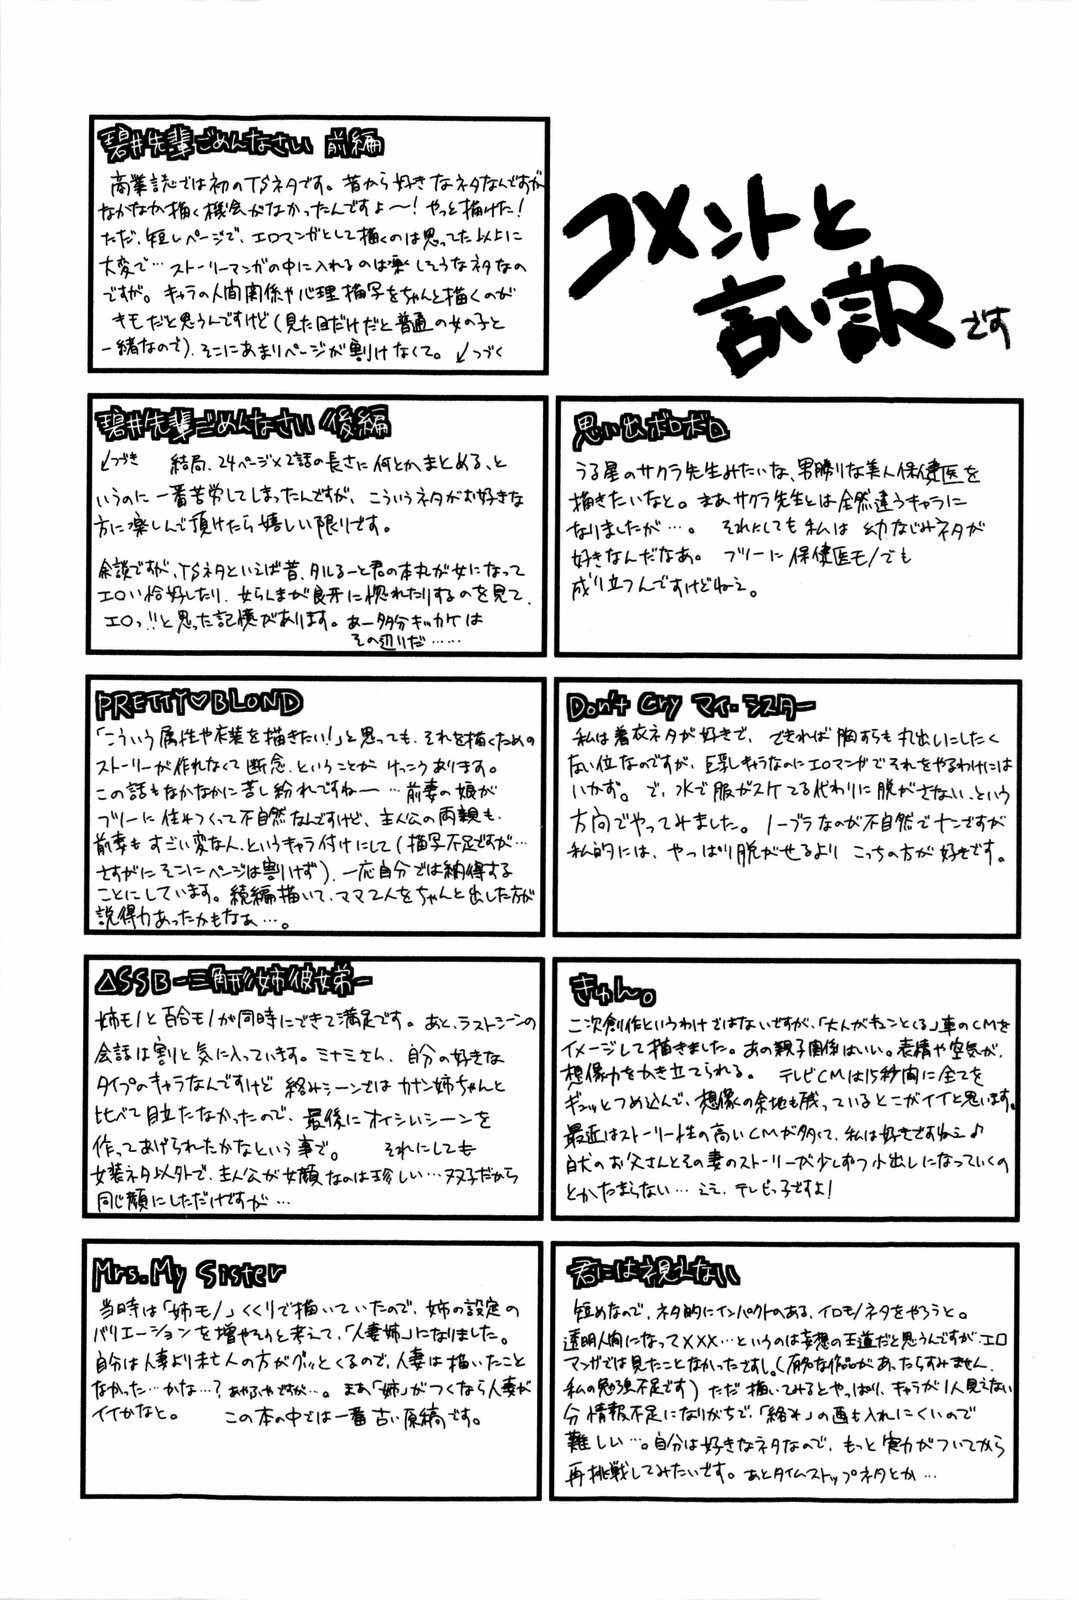 コメントと
言い訳です
碧井先輩ごめんなさい 前編
商業誌では初のTSネタです。昔から好きなネタなんですが
なかなか描く機会がなかったんですよ〜!やっと描けた!
ただ、短いページで、エロマンガとして描くのは思ってた以上に
大変で…ストーリーマンガの中に入れるのは楽しそうなネタなの
ですが。キャラの人間関係や心理描写をちゃんと描くのが
キモだと思うんですけど(見た目だけだと普通の女の子と
一緒なので)、そこにあまりページが割けなくて。↙つづく
碧井先輩ごめんなさい 後編
↙つづき 結局、24ページ×2話の長さに何とかまとめる、と
いうのに一番苦労してしまったんですが、こういうネタがお好きな
方に楽しんで頂けたら嬉しい限りです。
余談ですが、TSネタといえば昔、タルるーと君の本丸が女になって
エロい恰好したり、女らんまが良牙に惚れたりするのを見て、
エロっ!!と思った記憶があります。あー多分キッカケは
その辺りだ……
思い出ボロボロ
うる星のサクラ先生みたいな、男勝りな美人保健医を
描きたいなと。まあサクラ先生とは全然違うキャラに
なりましたが…。それにしても私は幼なじみネタが
好きなんだなあ。フツーに保健医モノでも
成り立つんですけどねえ。
PRETTY♡BLOND
「こういう属性や衣装を描きたい!」と思っても、それを描くための
ストーリーが作れなくて断念、ということがけっこうあります。
この話もなかなかに苦し紛れですね〜…前妻の娘が
フツーに住みつくって不自然なんですけど、主人公の両親も、
前妻もすごい変な人、というキャラ付けにして(描写不足ですが…
さすがにそこにページは割けず)、一応自分では納得する
ことにしています。続編描いて、ママ2人をちゃんと出した方が
説得力あったかもなぁ…。
Don't Cry マイ・シスター
私は着衣ネタが好きで、できれば胸すらも丸出しにしたく
ない位なのですが、巨乳キャラなのにエロマンガでそれをやるわけには
いかず。で、水で服がスケてる代わりに脱がさない、という
方向でやってみました。ノーブラなのが不自然でナンですが
私的には、やっぱり脱がせるよりこっちの方が好きです。
△SSB-三角形姉彼女弟-
姉モノと百合モノが同時にできて満足です。あと、ラストシーンの
会話は割と気に入っています。ミナミさん、自分の好きな
タイプのキャラなんですけど絡みシーンではカナン姉ちゃんと
比べて目立たなかったので、最後にオイシいシーンを
作ってあげられたかなという事で。 それにしても
女装ネタ以外で、主人公が女顔なのは珍しい…双子だから
同じ顔にしただけですが…
きゅん。
二次創作というわけではないですが、「大人がキュンとくる」車のCMを
イメージして描きました。あの親子関係はいい。表情や空気が、
想像力をかき立てられる。 テレビCMは15秒間に全てを
ギュッとつめ込んで、想像の余地も残っているとこがイイと思います。
最近はストーリー性の高いCMが多くて、私は好きですねえ♪
白犬のお父さんとその妻のストーリーが少しずつ小出しになっていくの
とかたまらない…ええ、テレビっ子ですよ!
Mrs. My Sister
当時は「姉モノ」くくりで描いていたので、姉の設定の
バリエーションを増やそうと考えて、「人妻姉」になりました。
自分は人妻より未亡人の方がグッとくるので、人妻は描いたこと
なかった…かな…?あやふやですが…。まあ「姉」がつくなら人妻が
イイかなと。 この本の中では一番古い原稿です。
君には視えない
短めなので、ネタ的にインパクトのある、イロモノネタをやろうと。
透明人間になって×××…というのは妄想の王道だと思うんですが、エロ
マンガでは見たことなかったですし。(有名な作品があったらすみません、
私の勉強不足です)ただ描いてみるとやっぱり、キャラが1人見えない
分情報不足になりがちで、「絡み」の画も入れにくいので
難しい…。自分は好きなネタなので、もっと実力がついてから
再挑戦してみたいです。あとタイムストップネタとか…